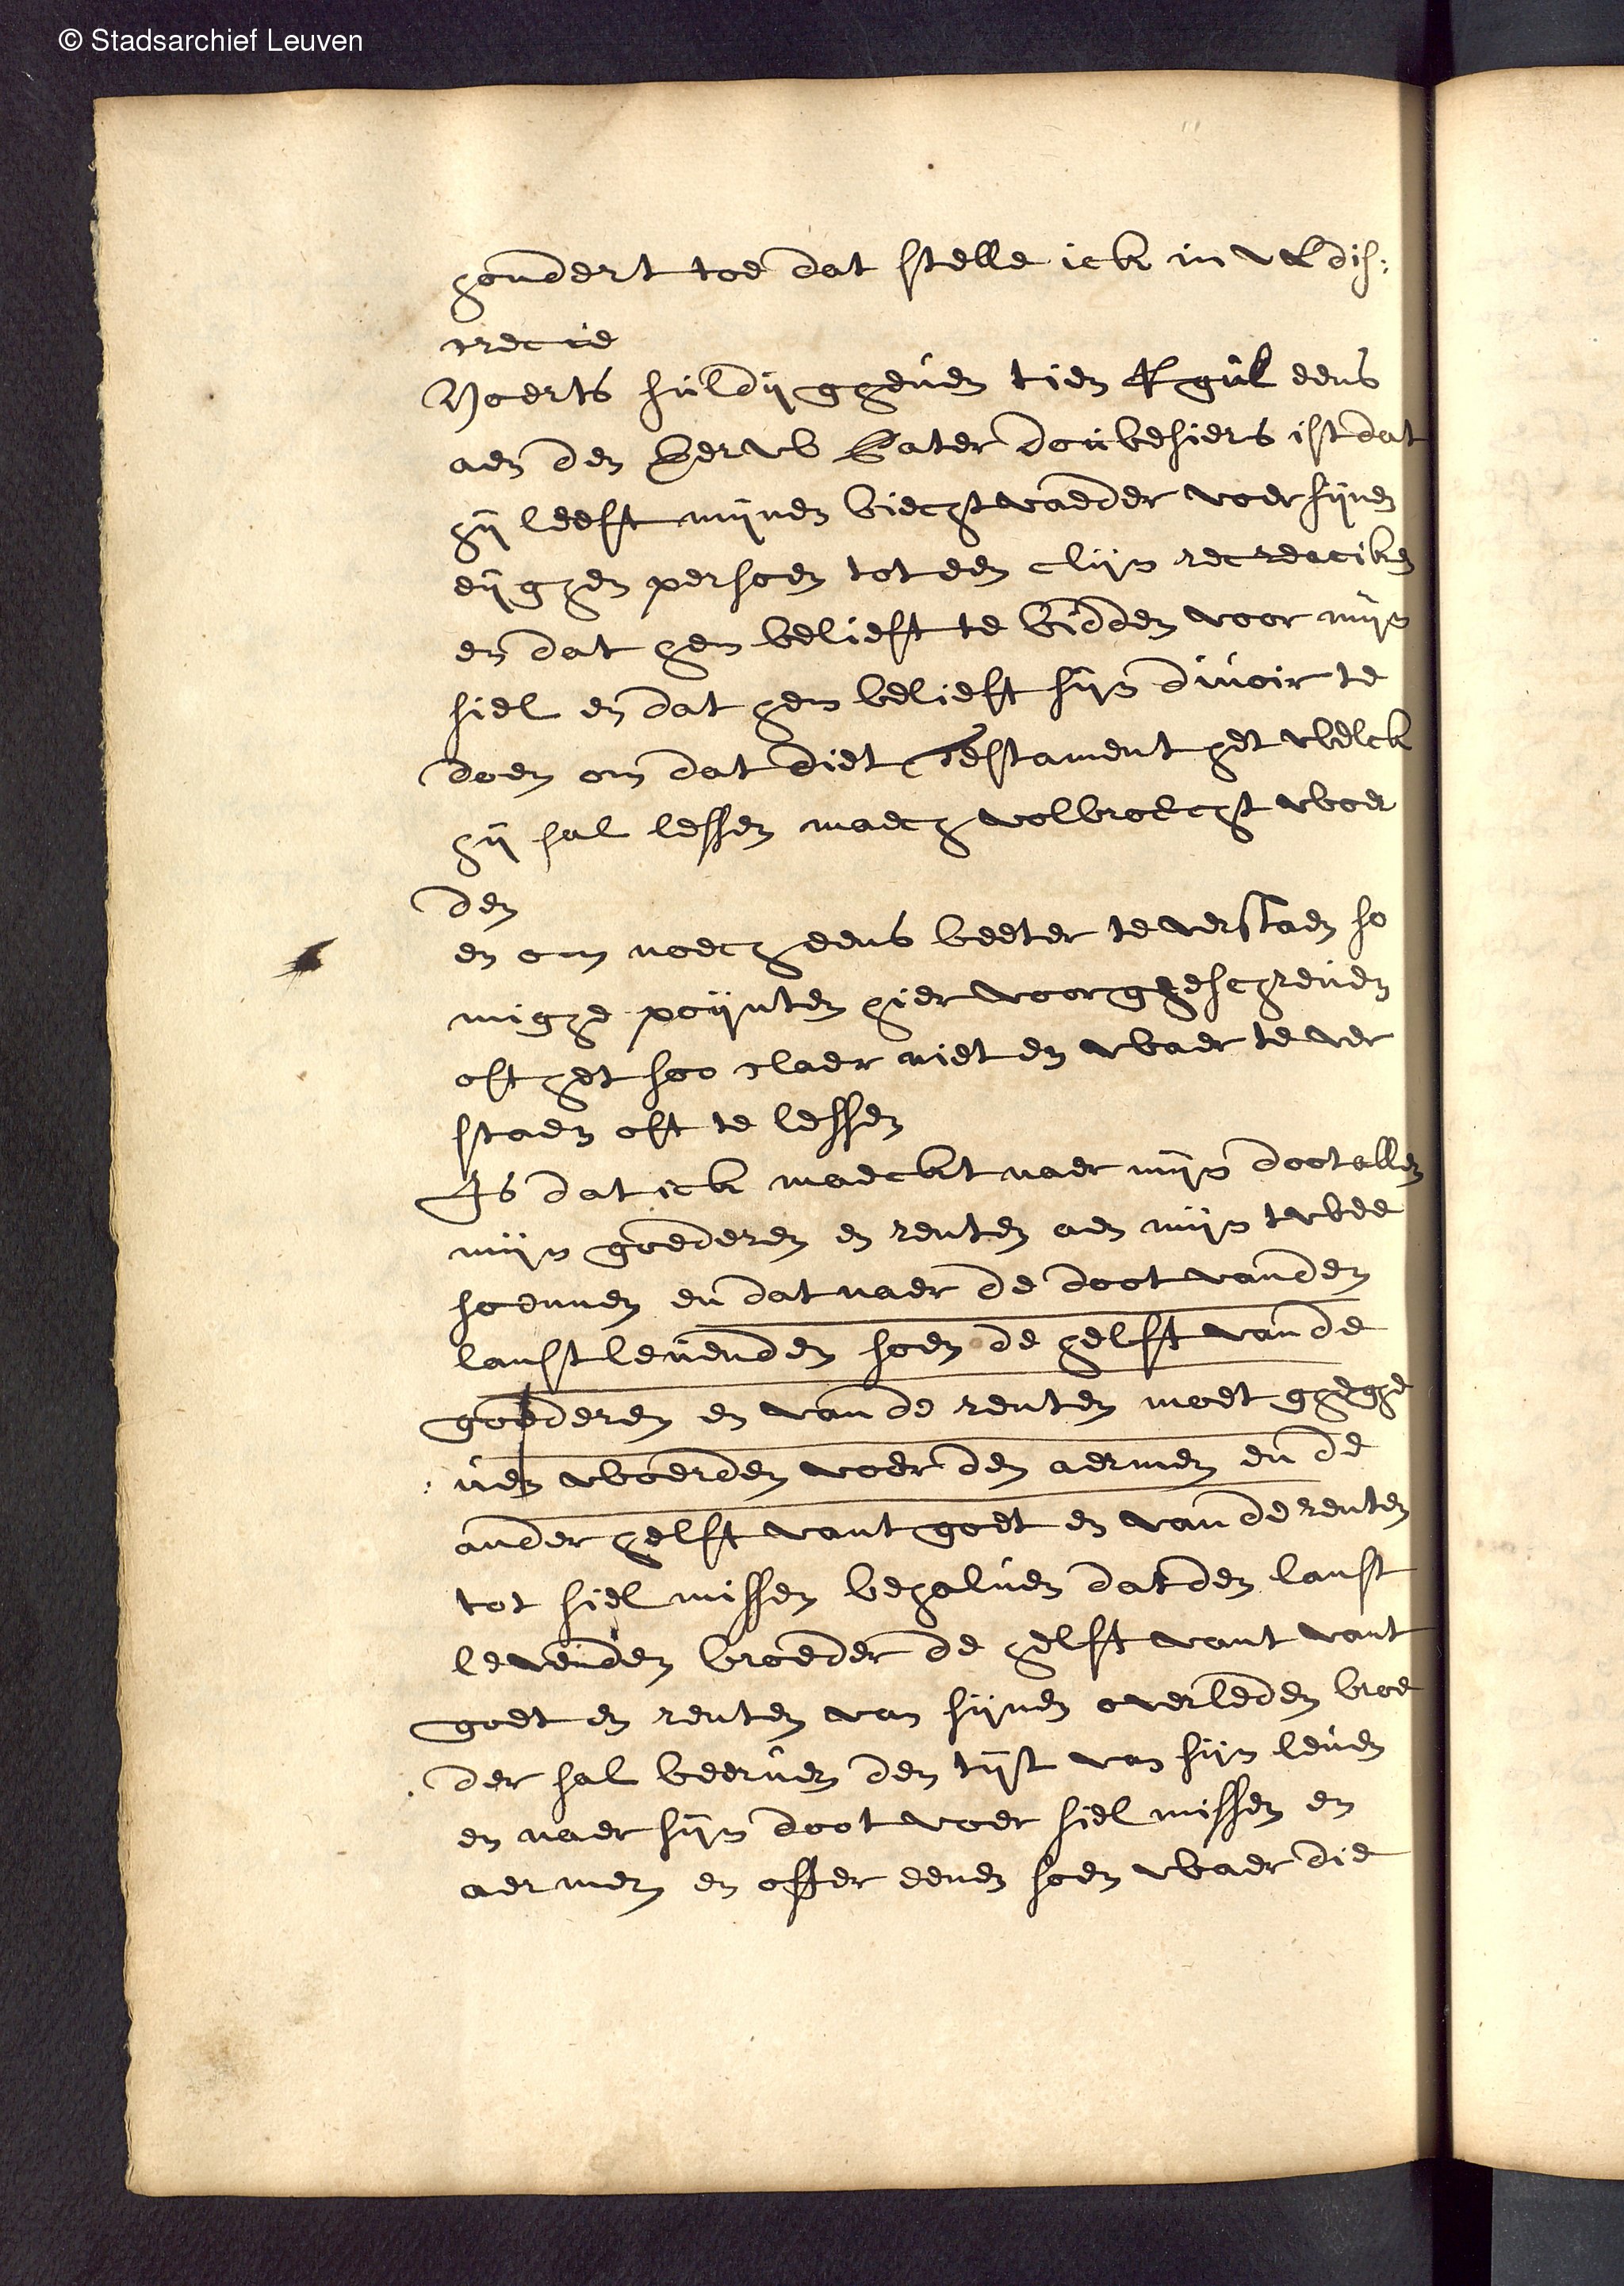 © Stadsarchief Leuven
hondert toe dat stelle ick in ul dis:
crecie
Voerts suldij gheuen tien R gul eens
aen den Eerw Pater doubesiers ist dat
hij leeft mijnen biechtvaeder voer sijnen
eijghen persoen tot een clijn recreacike
en dat hem belieft te bidden voor mijn
siel en dat hem belieft sijn divoir te
doen om dat diet Testament het welck
hij sal lessen maech volbroecht woer
den
en om noech eens beeter te verstaen so
mighe poijnten hier voor gheschreuen
oft het soo claer niet en waer te ver
staen oft te lessen
Is dat ick maeckt naer mijn doot allen
mijn goederen en renten aen mijn twee
soennen en dat naer de doot vanden
lanst leuenden soen de helft vande
goederen en vande renten moet gheghe
uen woerden voer den aermen en de
ander helft vant goet en vande renten
tot siel missen behaluen dat den lanst
levenden broeder de helft vant vant
goet en renten van sijnen overleden broe
der sal beeruen den tijt van sijn leuen
en naer sijn doot voer siel missen en
aermen en offer eenen soen waer die